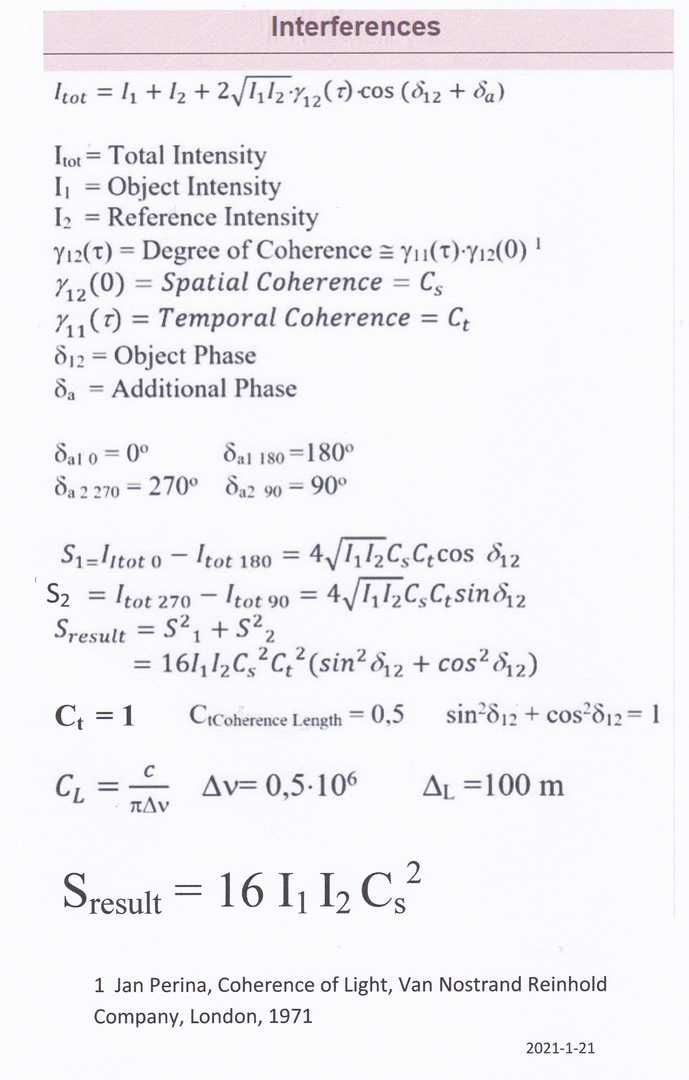 Interferences
Itot = I1 + I2 + 2√I1I2·γ12(τ)·cos (δ12 + δa)
Itot = Total Intensity
I1 = Object Intensity
I2 = Reference Intensity
γ12(τ) = Degree of Coherence ≅ γ11(τ)·γ12(0) 1
γ12(0) = Spatial Coherence = Cs
γ11(τ) = Temporal Coherence = Ct
δ12 = Object Phase
δa = Additional Phase
δa1 0 = 0º δa1 180 =180º
δa 2 270 = 270º δa2 90 = 90º
S1=IItot 0 − Itot 180 = 4√I1I2CsCtcos δ12
S2 = Itot 270 − Itot 90 = 4√I1I2CsCtsinδ12
Sresult = S²1 + S²2
= 16I1I2Cs²Ct²(sin²δ12 + cos²δ12)
Ct = 1 CtCoherence Length = 0,5 sin²δ12 + cos²δ12 = 1
CL = c/πΔν Δν= 0,5·10⁶ ΔL =100 m
Sresult = 16 I1 I2 Cs²
1 Jan Perina, Coherence of Light, Van Nostrand Reinhold
Company, London, 1971
2021-1-21